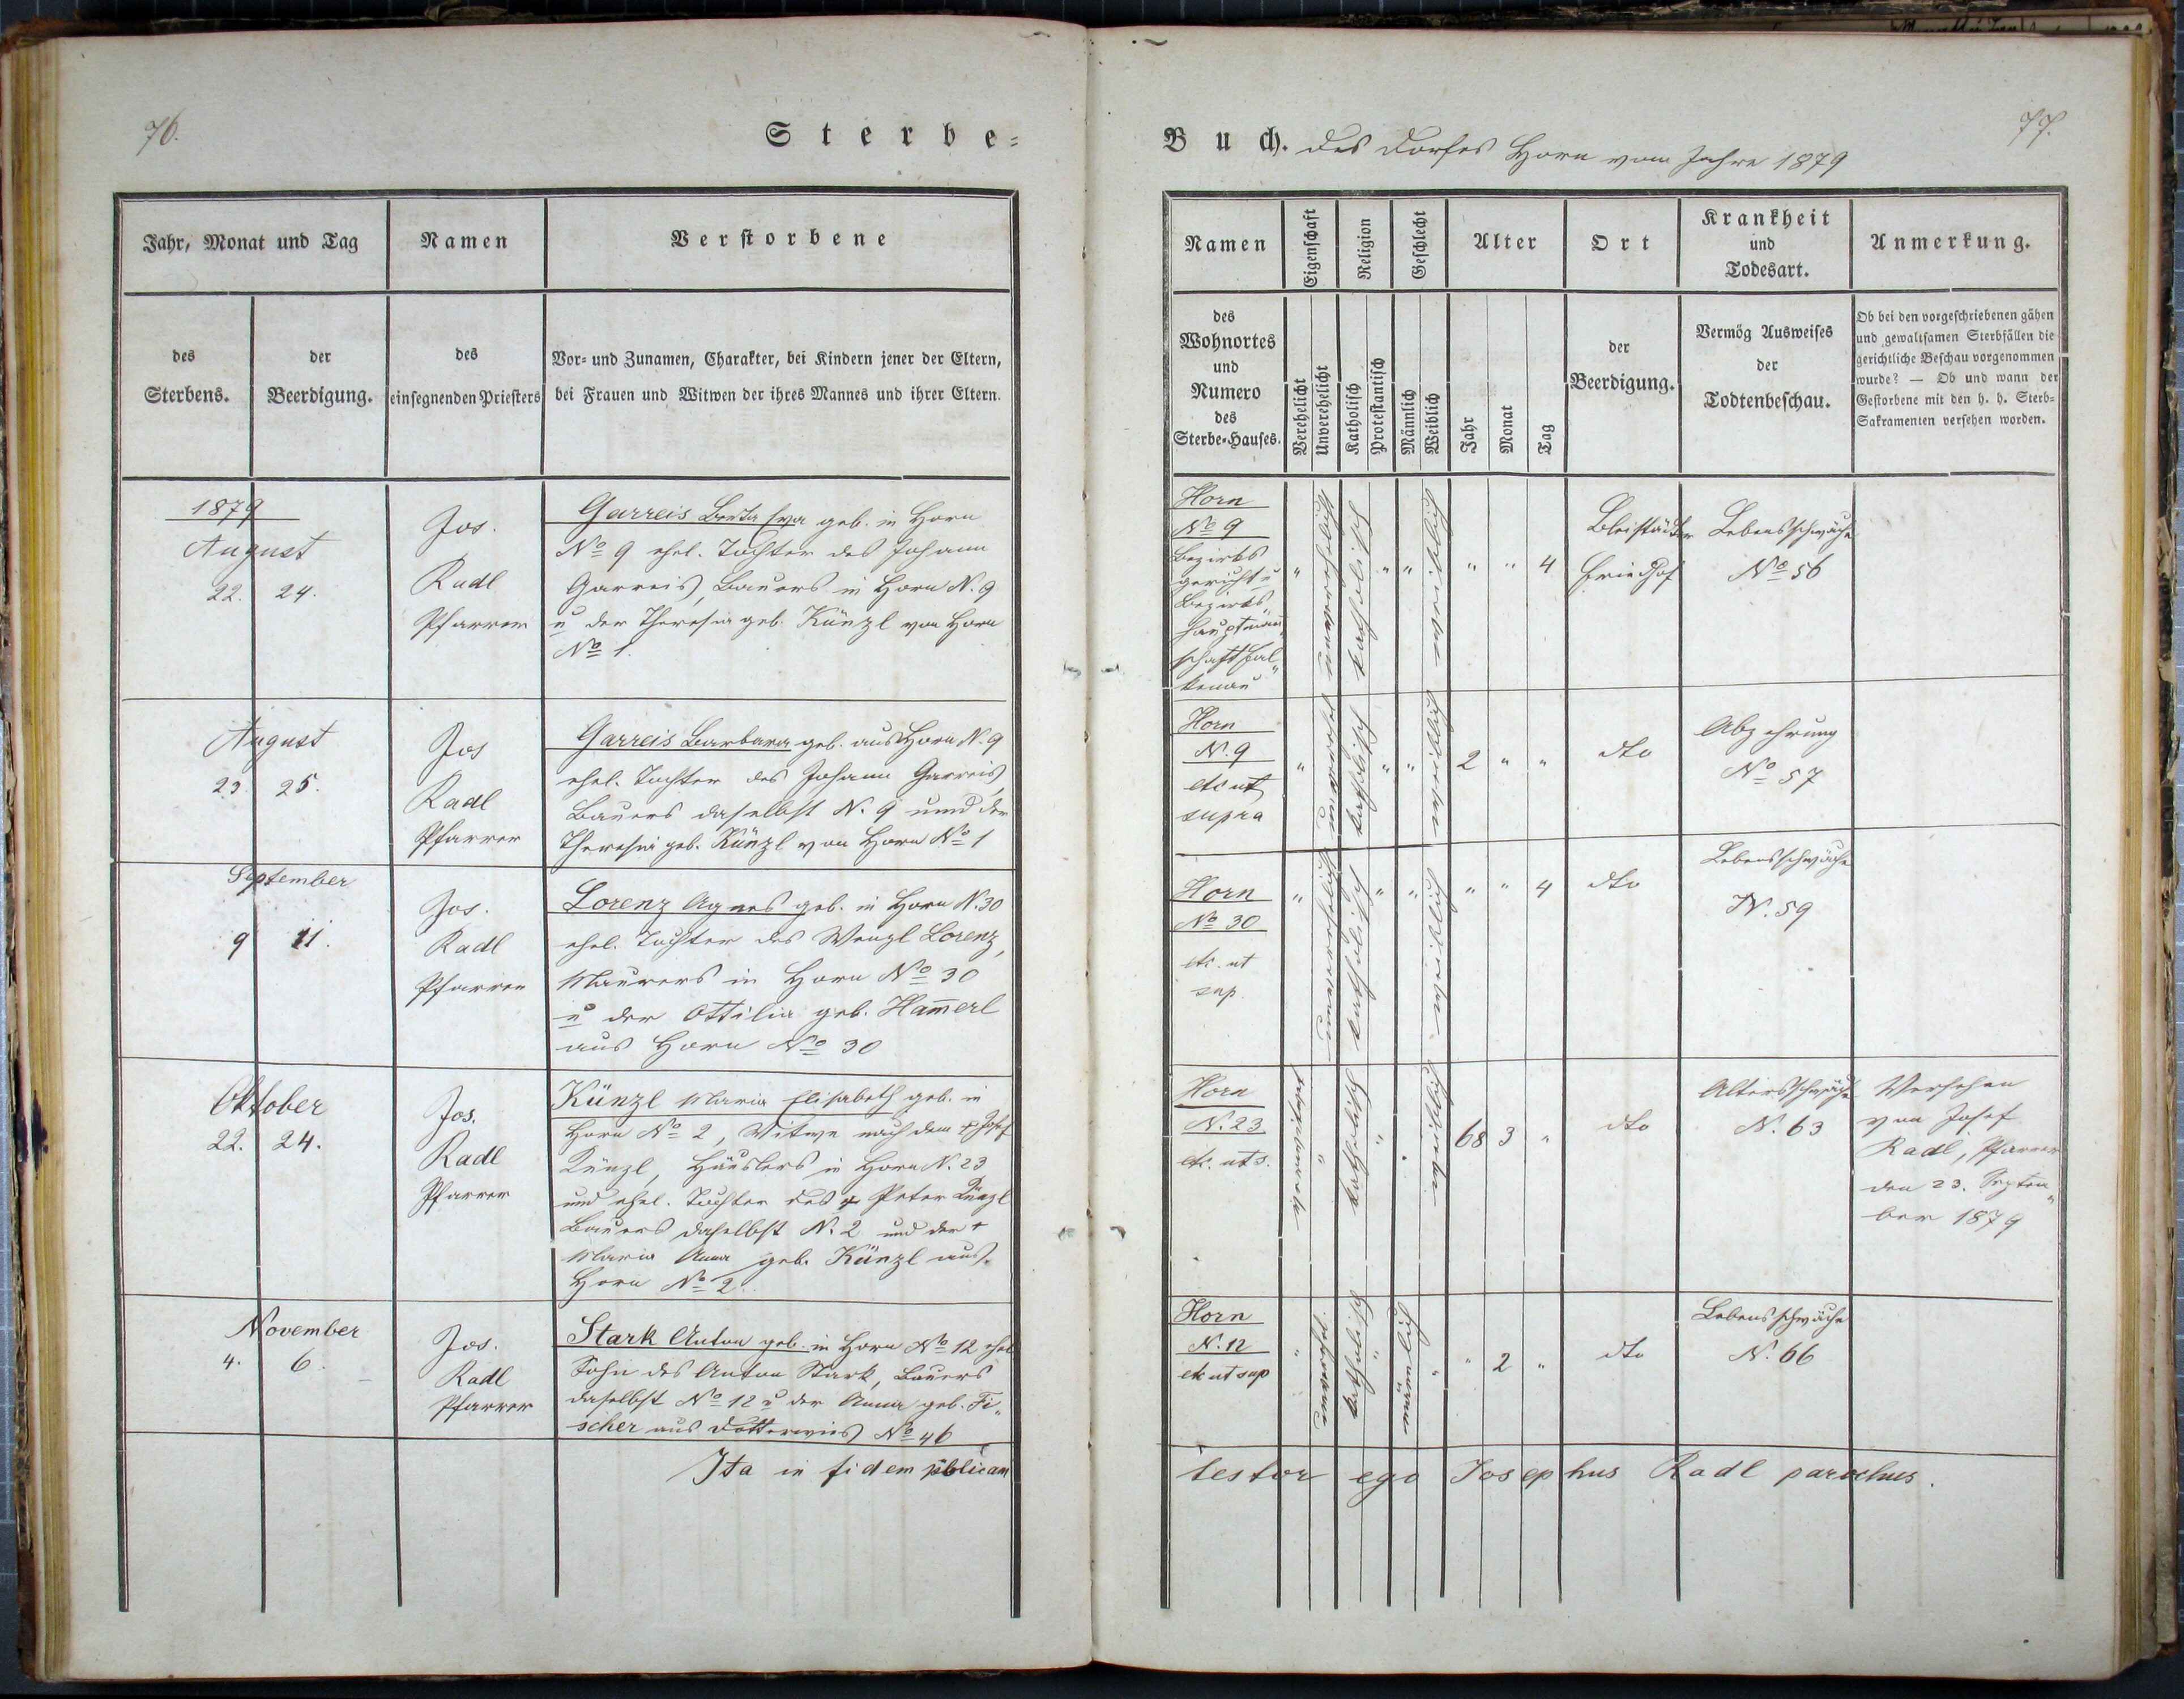 76.
Sterbe=
Jahr, Monat und Tag
Namen
Verstorbene
des
Sterbens.
der
Beerdigung.
des
einsegnenden Priesters
Vor= und Zunamen, Charakter, bei Kindern jener der Eltern,
bei Frauen und Witwen der ihres Mannes und ihrer Eltern.
1879
August
22. 24.
Jos.
Radl
Pfarrer
Garreis Berta Eva geb. in Horn
No 9 ehel. Tochter des Johann
Garreis, Bauers in Horn N. 9
u der Theresia geb. Künzl von Horn
No 1.
August
23. 25.
Jos
Radl
Pfarrer
Garreis Barbara geb. aus Horn N. 9
ehel. Tochter des Johann Garreis,
Bauers daselbst N. 9 und der
Theresia geb. Künzl von Horn No 1
September
9 11.
Jos.
Radl
Pfarrer
Lorenz Agnes geb. in Horn N. 30
ehel. Tochter des Wenzl Lorenz,
Maurers in Horn No 30
u der Ottilia geb. Ham̄erl
aus Horn No 30
Oktober
22. 24.
Jos.
Radl
Pfarrer
Künzl Maria Elisabeth geb. in
Horn No 2, Witwe nach dem + Josef
Künzl, Häuslers in Horn N. 23
und ehel. Tochter des + Peter Künzl
Bauers daselbst N. 2 und der +
Maria Anna geb. Künzl aus
Horn No 2.
November
4. 6.
Jos.
Radl
Pfarrer
Stark Anton geb. in Horn No 12 ehel
Sohn des Anton Stark, Bauers
daselbst No 12 u der Anna geb. Fi„
scher aus Dotterwies No 46
Ita in fidem publicam
77.
Buch. des Dorfes Horn vom Jahre 1879
Namen
Eigenschaft
Religion
Geschlecht
Alter
Ort
Krankheit
und
Todesart.
Anmerkung.
des
Wohnortes
und
Numero
des
Sterbe=Hauses.
Verehelicht
Unverehelicht
Katholisch
Protestantisch
Männlich
Weiblich
Jahr
Monat
Tag
der
Beerdigung.
Vermög Ausweises
der
Todtenbeschau.
Ob bei den vorgeschriebenen gähen
und gewaltsamen Sterbfällen die
gerichtliche Beschau vorgenommen
wurde? — Ob und wann der
Gestorbene mit den h. h. Sterb=
Sakramenten versehen worden.
Horn
No 9
Bezirks
gericht u
Bezirks„
hauptman̄„
schaft Fal„
kenau
" unverehelicht katholisch " " weiblich " " 4
Bleistädter
Friedhof
Lebensschwäche
No 56
Horn
N. 9
etc ut
supra
" katholisch " " weiblich 2 " "
dto
Abzehrung
No 57
Horn
No 30
etc. ut
sup
" unverehelicht katholisch " " weiblich " " 4
dto
Lebensschwäche
N. 59
Horn
N. 23
etc. ut s.
" katholisch " " weiblich 68 3 "
dto
Altersschwäche
N. 63
Versehen
von Josef
Radl, Pfarrer
den 23. Septem„
ber 1879
Horn
N. 12
etc ut sup
" katholisch " männlich " " 2 "
dto
Lebensschwäche
N. 66
testor ego Josephus Radl parochus.